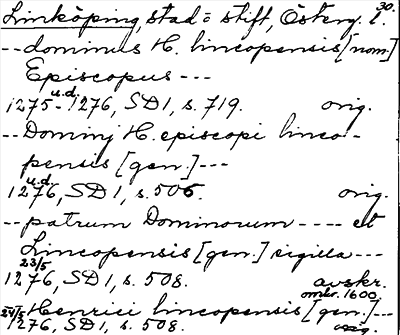 30.
Linköping, stad = stift, Österg. l.
-- dominus H. lincopensis [nom.]
Episcopus ---
u.d.
1275-1276, SD 1, s. 719. orig.
-- Dominj H. episcopi linco-
pensis [gen.] ---
u.d.
1276, SD 1, s. 506. orig.
-- patrum Dominorum ---- et
Lincopensis [gen.] sigilla ---
23/5
1276, SD 1, s. 508. avskr.
omkr. 1600.
Henrici lincopensis [gen.] ---
24/5
1276, SD 1, s. 508. orig.